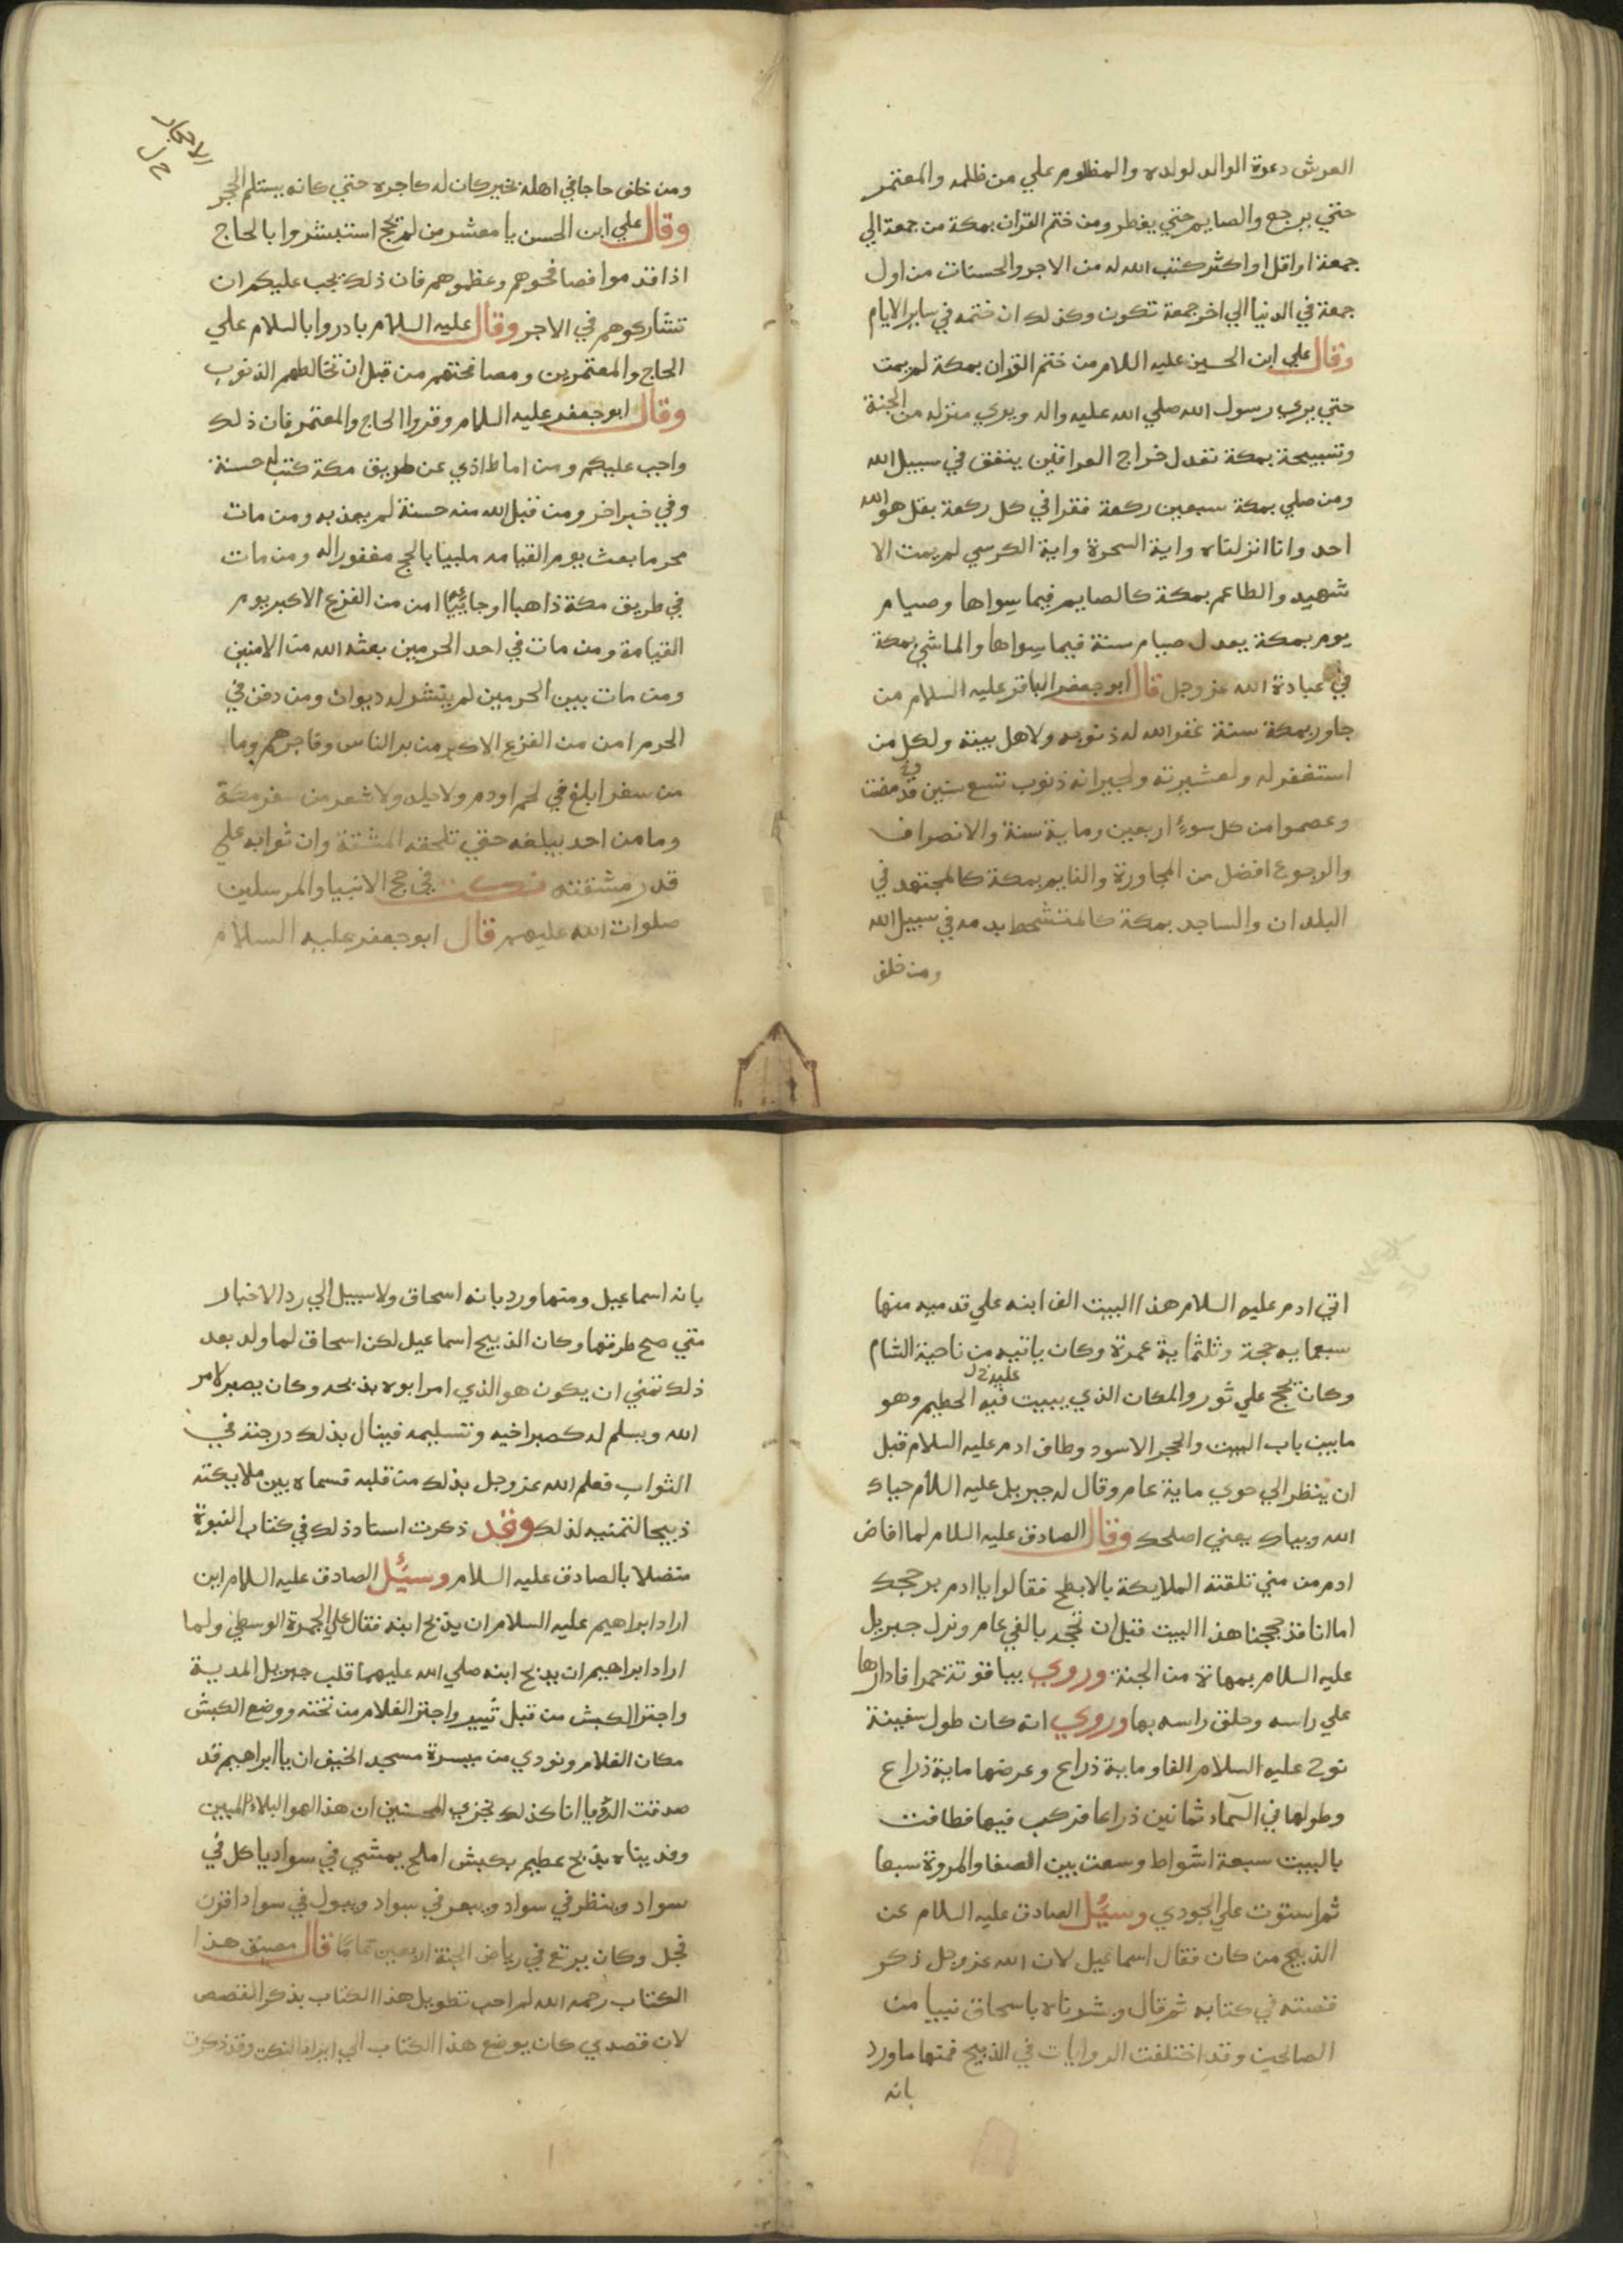 العرش دعوة الوالد لولده والمظلوم علي من ظلمه والمعتمر
حتي يرجع والصايم حتي يفطر ومن ختم القران بمكة من جمعة الي
جمعة او اقل او اكثر كتب الله له من الاجر والحسنات من اول
جمعة في الدنيا الي اخر جمعة تكون وكذلك ان ختمه في ساير الايام
وقال علي ابن الحسين عليه السلام من ختم القران بمكة لم يمت
حتي يري رسول الله صلي الله عليه واله ويري منزله من الجنة
وتسبيحة بمكة تعدل خراج العراقين ينفق في سبيل الله
ومن صلي بمكة سبعين ركعة فقرا في كل ركعة بقل هو الله
احد وانا انزلناه واية السخرة واية الكرسي لم يمت الا
شهيد والطاعم بمكة كالصايم فيما سواها وصيام
يوم بمكة يعدل صيام سنة فيما سواها والماشي بمكة
في عبادة الله عز وجل قال ابو جعفر الباقر عليه السلام من
جاور بمكة سنة غفر الله له ذنوبه ولاهل بيته ولكل من
استغفر له ولعشيرته ولجيرانه ذنوب تسع سنين قد مضت
وعصموا من كل سوء اربعين وماية سنة والانصراف
والرجوع افضل من المجاورة والنايم بمكة كالمجتهد في
البلدان والساجد بمكة كالمتشحط بدمه في سبيل الله
ومن خلف
ومن خلف حاجا في اهله بخير كان له كاجره حتي كانه يستلم الحجر
الاحجار
خ ل
وقال علي ابن الحسن يا معشر من لم يحج استبشروا بالحاج
اذا قدموا فصافحوهم وعظموهم فان ذلك يجب عليكم ان
تشاركوهم في الاجر وقال عليه السلام بادروا بالسلام علي
الحاج والمعتمرين ومصافحتهم من قبل ان تخالطهم الذنوب
وقال ابو جعفر عليه السلام وقروا الحاج والمعتمر فان ذلك
واجب عليكم ومن اماط اذي عن طريق مكة كتب له حسنة
وفي خبر اخر ومن قبل الله منه حسنة لم يعذبه ومن مات
محرما بعث يوم القيامه ملبيا بالحج مغفورا له ومن مات
في طريق مكة ذاهبا او جاييا امن من الفزع الاكبر يوم
القيامة ومن مات في احد الحرمين بعثه الله من الامنين
ومن مات بين الحرمين لم ينشر له ديوان ومن دفن في
الحرم امن من الفزع الاكبر من بر الناس وفاجرهم وما
من سفر ابلغ في لحم او دم ولا جلد ولا شعر من سفر مكة
وما من احد يبلغه حتي تلحقه المشقة وان ثوابه علي
قدر مشقته نكت في حج الانبيا والمرسلين
صلوات الله عليهم قال ابو جعفر عليه السلام
اتي ادم عليه السلام هذا البيت الف اتية علي قدميه منها
سبعمايه حجة وثلثماية عمرة وكان ياتيه من ناحية الشام
وكان يحج علي ثور والمكان الذي يبيت فيه الحطيم وهو
عليه خ ل
ما بين باب البيت والحجر الاسود وطاف ادم عليه السلام قبل
ان ينظر الي حوي ماية عام وقال له جبريل عليه السلام حياك
الله وبياك يعني اصلحك وقال الصادق عليه السلام لما افاض
ادم من مني تلقته الملايكة بالابطح فقالوا يا ادم بر حجك
اما انا قد حججنا هذا البيت قبل ان تحجه بالفي عام ونزل جبريل
عليه السلام بمهاة من الجنة وروي بياقوتة حمرا فادارها
علي راسه وحلق راسه بها وروي انه كان طول سفينة
نوح عليه السلام الفا وماية ذراع وعرضها ماية ذراع
وطولها في السماء ثمانين ذراعا فركب فيها فطافت
بالبيت سبعة اشواط وسعت بين الصفا والمروة سبعا
ثم استوت علي الجودي وسئل الصادق عليه السلام عن
الذبيح من كان فقال اسماعيل لان الله عز وجل ذكر
قصته في كتابه ثم قال وبشرناه باسحاق نبيا من
الصالحين وقد اختلفت الروايات في الذبيح فمنها ما ورد
بانه
بانه اسماعيل ومنها ورد بانه اسحاق ولا سبيل الي رد الاخبار
متي صح طرقها وكان الذبيح اسماعيل لكن اسحاق لما ولد بعد
ذلك تمني ان يكون هو الذي امر ابوه بذبحه وكان يصبر لامر
الله ويسلم له كصبر اخيه وتسليمه فينال بذلك درجته في
الثواب فعلم الله عز وجل بذلك من قلبه فسماه بين ملايكته
ذبيحا لتمنيه لذلك وقد ذكرت اسناد ذلك في كتاب النبوة
متصلا بالصادق عليه السلام وسئل الصادق عليه السلام اين
اراد ابراهيم عليه السلام ان يذبح ابنه فقال علي الجمرة الوسطي ولما
اراد ابراهيم ان يذبح ابنه صلي الله عليهما قلب جبريل المدية
واجتر الكبش من قبل ثبير واجتر الغلام من تحته ووضع الكبش
مكان الغلام ونودي من ميسرة مسجد الخيف ان يا ابراهيم قد
صدقت الرؤيا انا كذلك نجزي المحسنين ان هذا لهو البلاء المبين
وفديناه بذبح عظيم بكبش املح يمشي في سواد ياكل في
سواد وينظر في سواد ويبعر في سواد ويبول في سواد اقرن
فحل وكان يرتع في رياض الجنة اربعين عاما قال مصنف هذا
الكتاب رحمه الله لم احب تطويل هذا الكتاب بذكر القصص
لان قصدي كان بوضع هذا الكتاب الي ايراد النكت وقد ذكرت